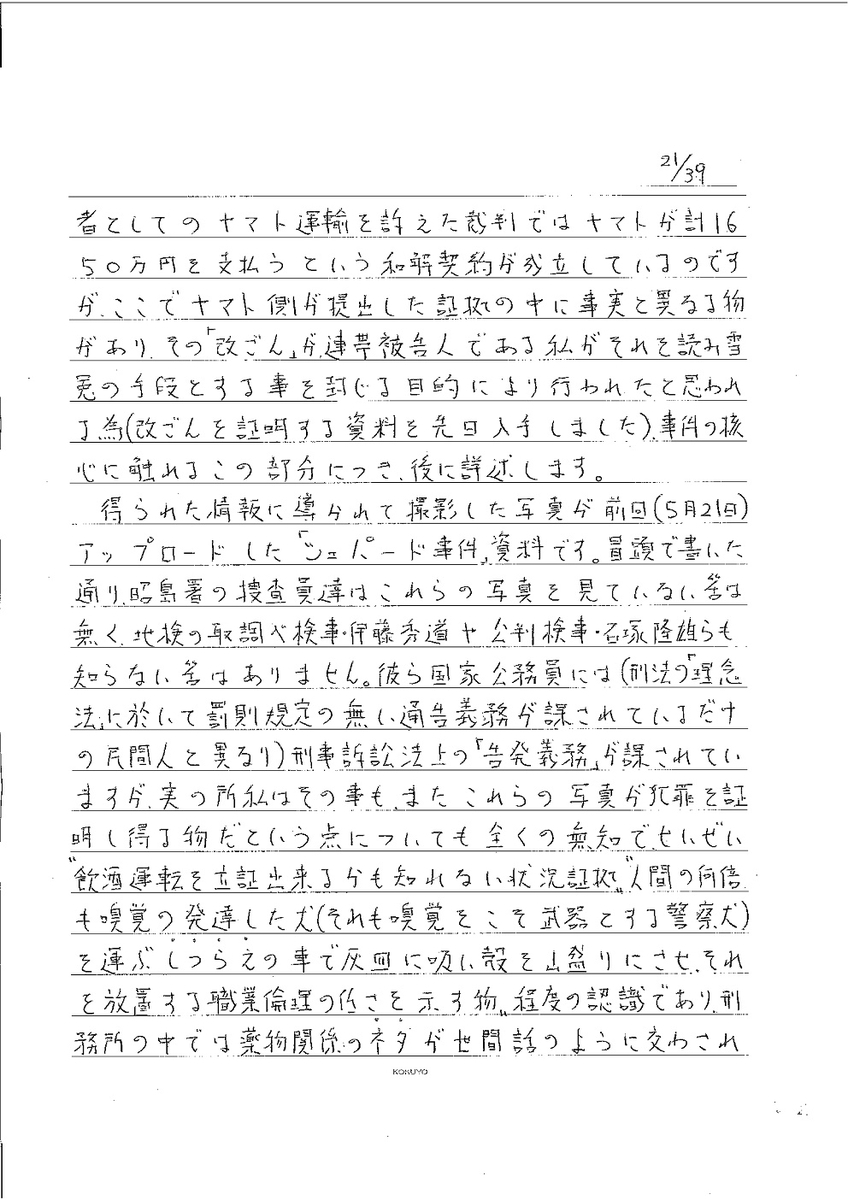 21/39
者としてのヤマト運輸を訴えた裁判ではヤマトが計16
50万円を支払うという和解契約が成立しているのです
が、ここでヤマト側が提出した証拠の中に事実と異なる物
があり、その「改ざん」が連帯被告人である私がそれを読み雪
冤の手段とする事を封じる目的により行われたと思われ
る為(改ざんを証明する資料を先日入手しました)、事件の核
心に触れるこの部分につき、後に詳述します。
得られた情報に導かれて撮影した写真が前回(5月21日)
アップロードした「シェパード事件」資料です。冒頭で書いた
通り、昭島署の捜査員達はこれらの写真を見ていない筈は
無く、地検の取調べ検事・伊藤秀道や公判検事・石塚隆雄らも
知らない筈はありません。彼ら国家公務員には(刑法の「理念
法」に於いて罰則規定の無い通告義務が課されているだけ
の民間人と異なり)刑事訴訟法上の「告発義務」が課されてい
ますが、実の所私はその事も、またこれらの写真が犯罪を証
明し得る物だという点についても全くの無知で、せいぜい
“飲酒運転を立証出来るかも知れない状況証拠”“人間の何倍
も嗅覚の発達した犬(それも嗅覚をこそ武器とする警察犬)
を運ぶしつらえの車で灰皿に吸い殻を山盛りにさせ、それ
を放置する職業倫理の低さを示す物”程度の認識であり、刑
務所の中では薬物関係のネタが世間話のように交わされ
KOKUYO